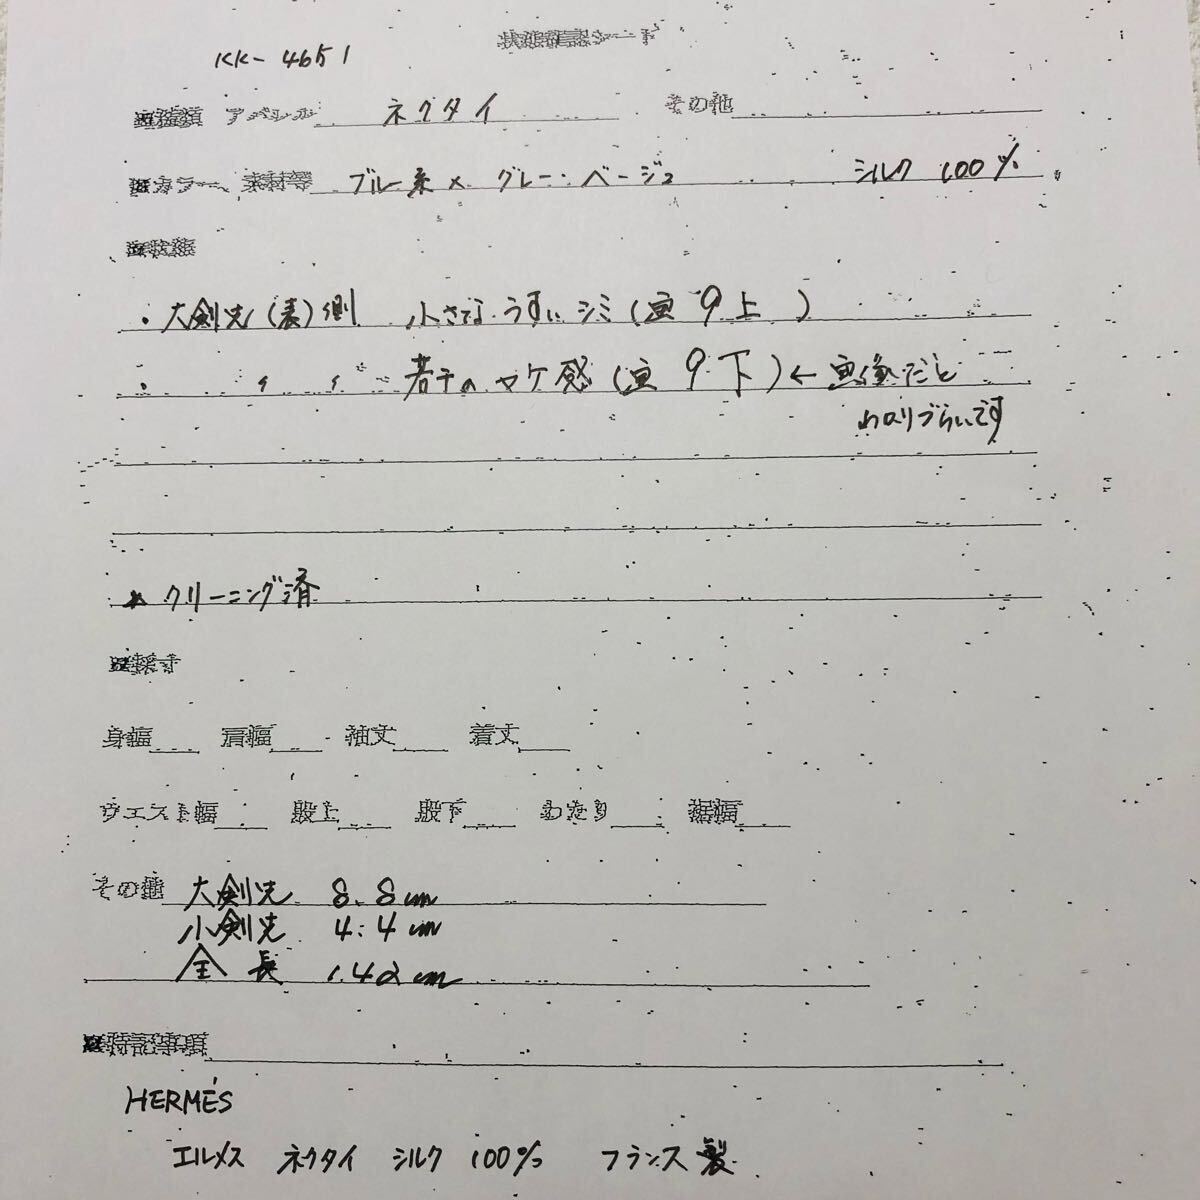 状態確認シート
KK-4651
■種類 アパレル ネクタイ その他
■カラー、素材等 ブルー系 × グレーンベージュ シルク 100%
■状態
・大剣先(表)側 小さなうすいシミ(画9上)
・ 〃 〃 若干のヤケ感(画9下)←画像だと
わかりづらいです
クリーニング済
■採寸
身幅 肩幅 袖丈 着丈
ウエスト幅 股上 股下 わたり 裾幅
その他 大剣先 8.8cm
小剣先 4.4cm
全長 142cm
■特記事項
HERMÈS
エルメス ネクタイ シルク 100% フランス製